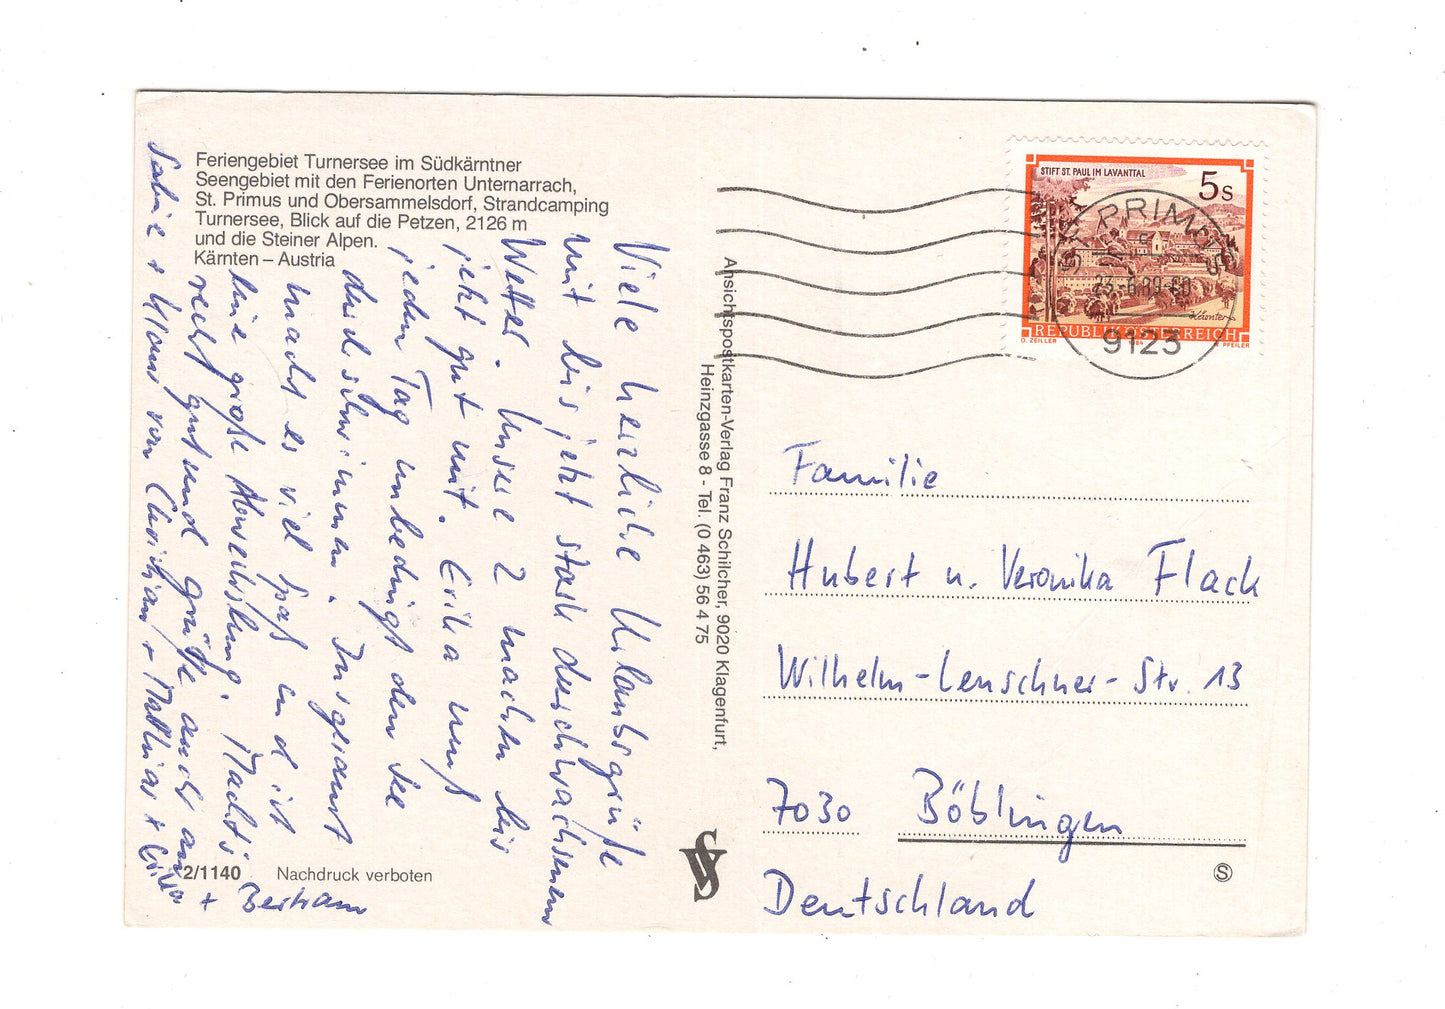 Feriengebiet Turnersee im Südkärntner
Seengebiet mit den Ferienorten Unternarrach,
St. Primus und Obersammelsdorf, Strandcamping
Turnersee, Blick auf die Petzen, 2126 m
und die Steiner Alpen.
Kärnten – Austria
Viele herzliche Urlaubsgrüße
mit bis jetzt stark durchwachsenem
Wetter. Unsere 2 machen bis
jetzt gut mit. Erika muß
jeden Tag unbedingt den See
durchschwimmen. Insgesamt
macht es viel Spaß und ist
eine große Abwechslung. Macht's
recht gut und grüße auch an
Sabine + Klaus von Christian + Matthias + Erika
+ Bertram
2/1140 Nachdruck verboten
Ansichtspostkarten-Verlag Franz Schilcher, 9020 Klagenfurt,
Heinzgasse 8 - Tel. (0 463) 56 4 75
STIFT ST. PAUL IM LAVANTTAL
5 S
Kärnten
REPUBLIK ÖSTERREICH
O. ZEILLER 1984 W. PFEILER
ST. PRIMUS
23.-6.89-
9123
Familie
Hubert u. Veronika Flack
Wilhelm-Leuschner-Str. 13
7030 Böblingen
Deutschland
S